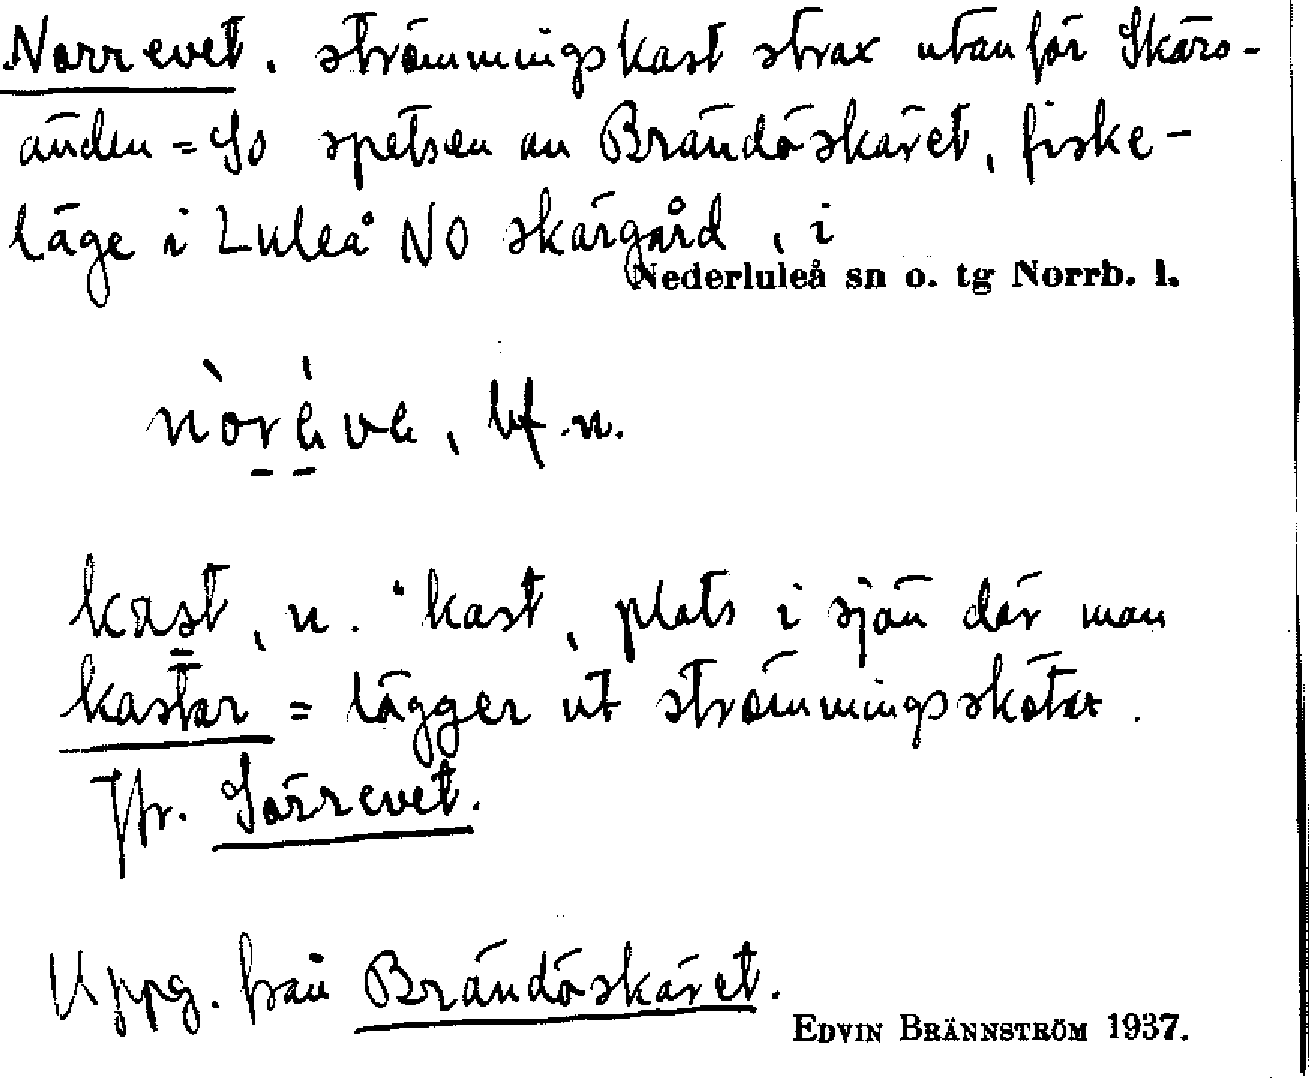 Norrevet. strömmingskast strax utanför Skärs-
änden = So spetsen av Brändöskäret, fiske-
läge i Luleå NO skärgård, i
Nederluleå sn o. tg Norrb. l.
bf. n.
kast, n. "kast, plats i sjön där man
kastar = lägger ut strömmingsskötar.
Jfr. Sörrevet.
Uppg. från Brändöskäret.
EDVIN BRÄNNSTRÖM 1937.